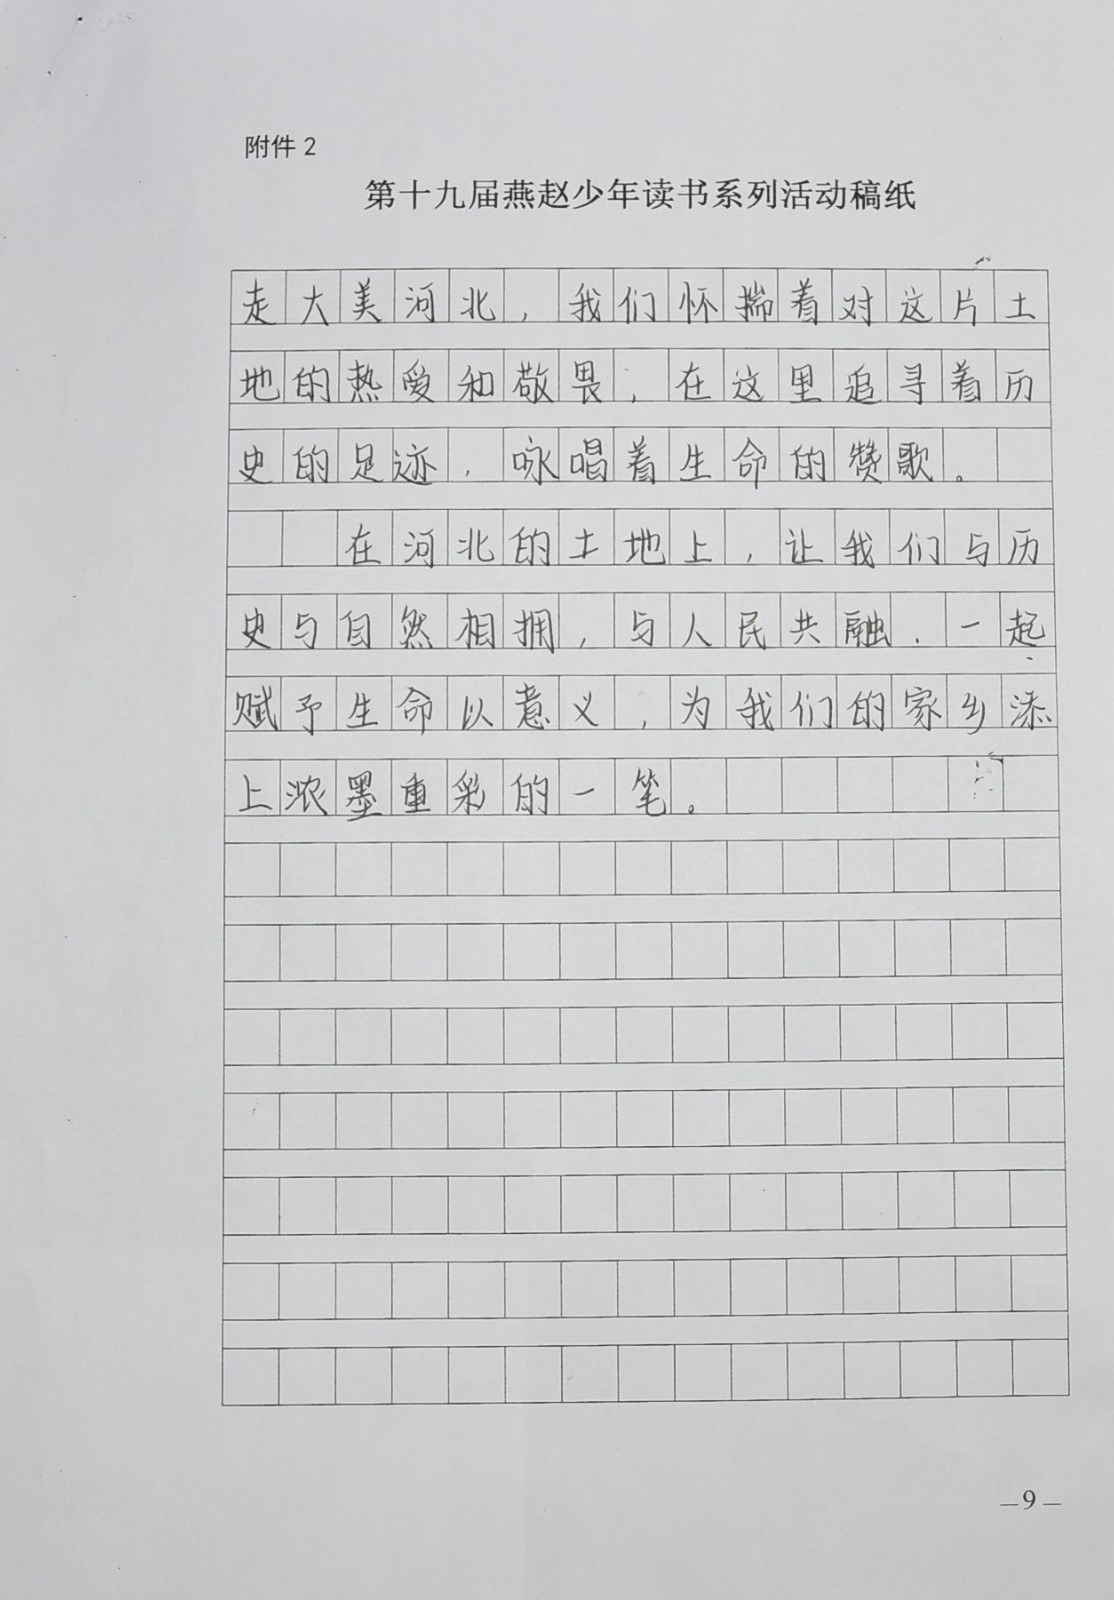 附件 2
第十九届燕赵少年读书系列活动稿纸
走大美河北，我们怀揣着对这片土
地的热爱和敬畏，在这里追寻着历
史的足迹，咏唱着生命的赞歌。
在河北的土地上，让我们与历
史与自然相拥，与人民共融，一起
赋予生命以意义，为我们的家乡添
上浓墨重彩的一笔。
—9—